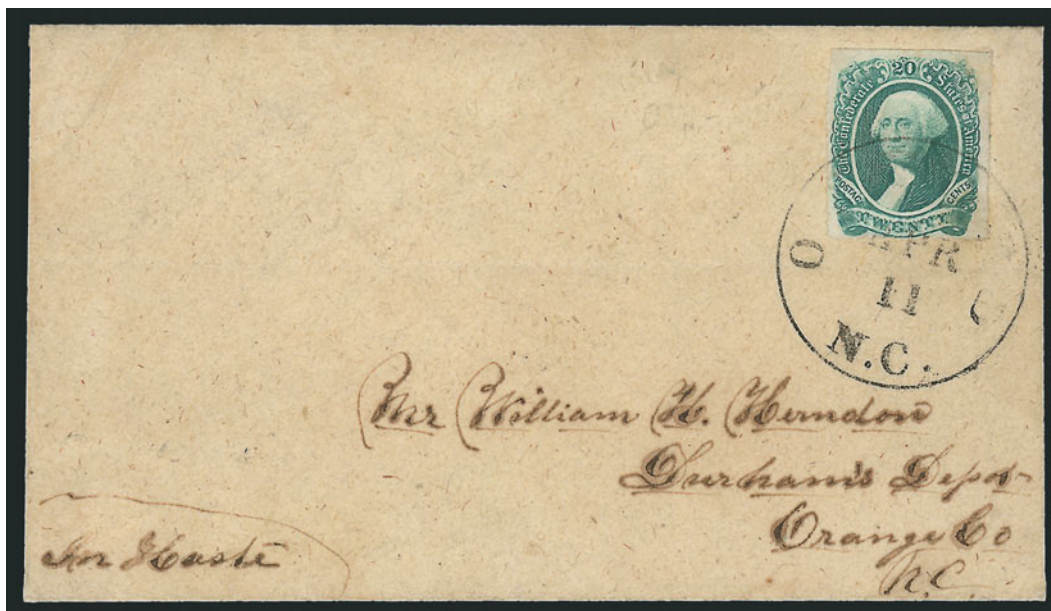 20
The Confederate States of America
POSTAGE CENTS
TWENTY
APR
11
N.C.
Mr William H. Herndon
Durham's Depot
Orange Co
N.C.
In Haste